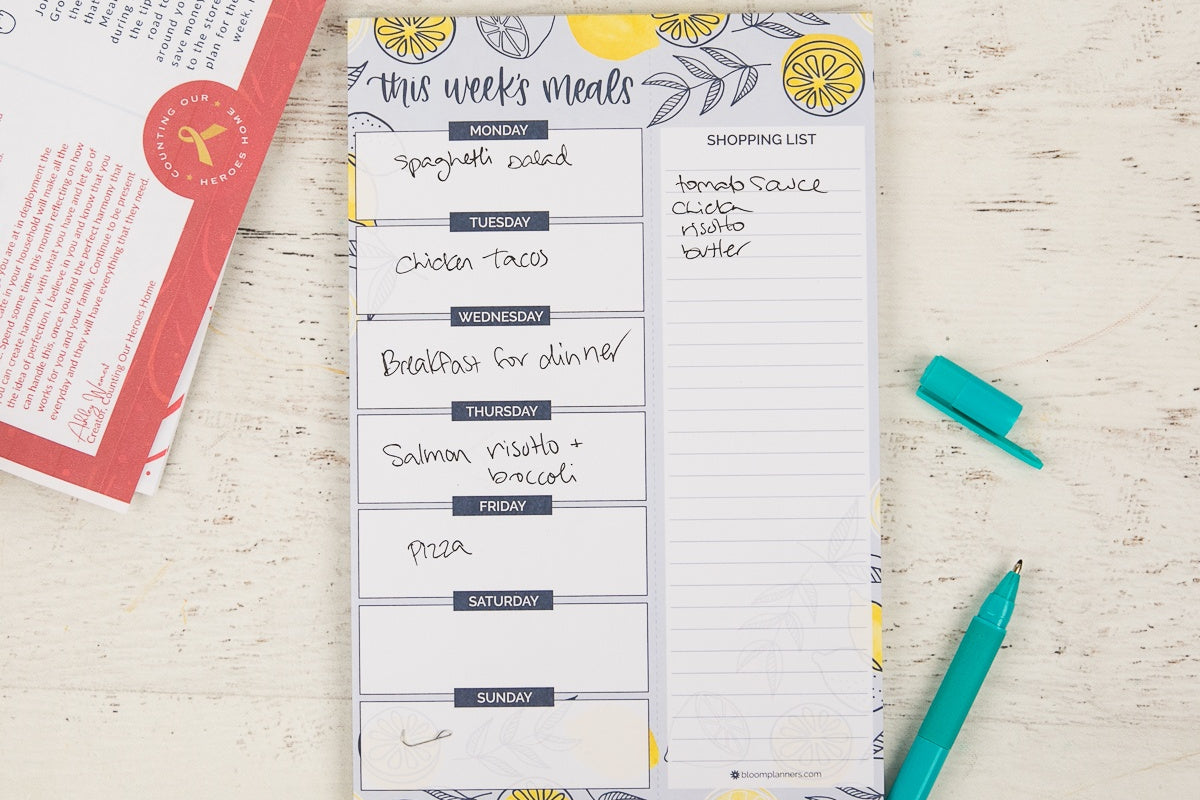 during
the tip
road to
around yo
save money
to the store
plan for the
week.
COUNTING OUR HEROES HOME
you are at in deployment the
in your household will make all the
Spend some time this month reflecting on how
you can create harmony with what you have and let go of
the idea of perfection. I believe in you and know that you
can handle this, once you find the perfect harmony that
works for you and your family. Continue to be present
everyday and they will have everything that they need.
Ashley
Creator, Counting Our Heroes Home
this week's meals
MONDAY
spaghetti salad
TUESDAY
Chicken tacos
WEDNESDAY
Breakfast for dinner
THURSDAY
Salmon risotto +
broccoli
FRIDAY
pizza
SATURDAY
SUNDAY
SHOPPING LIST
tomato sauce
chicken
risotto
butter
bloomplanners.com